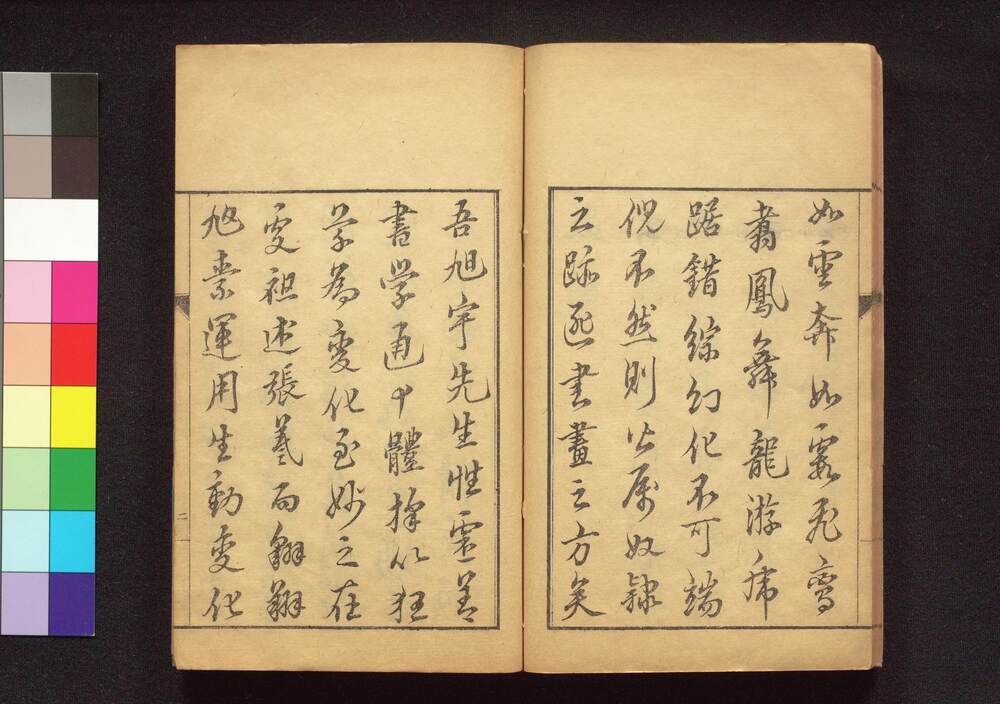 如雲奔如霞飛鸞
翥鳳舞龍游虎
踞錯綜幻化不可端
倪不然則皆屬奴隸
之跡逐書畫之方矣
吾旭宇先生性靈善
書學通十體擅以狂
草為變化至妙之在
更祖述張羲而翩翔
旭素運用生動變化
二